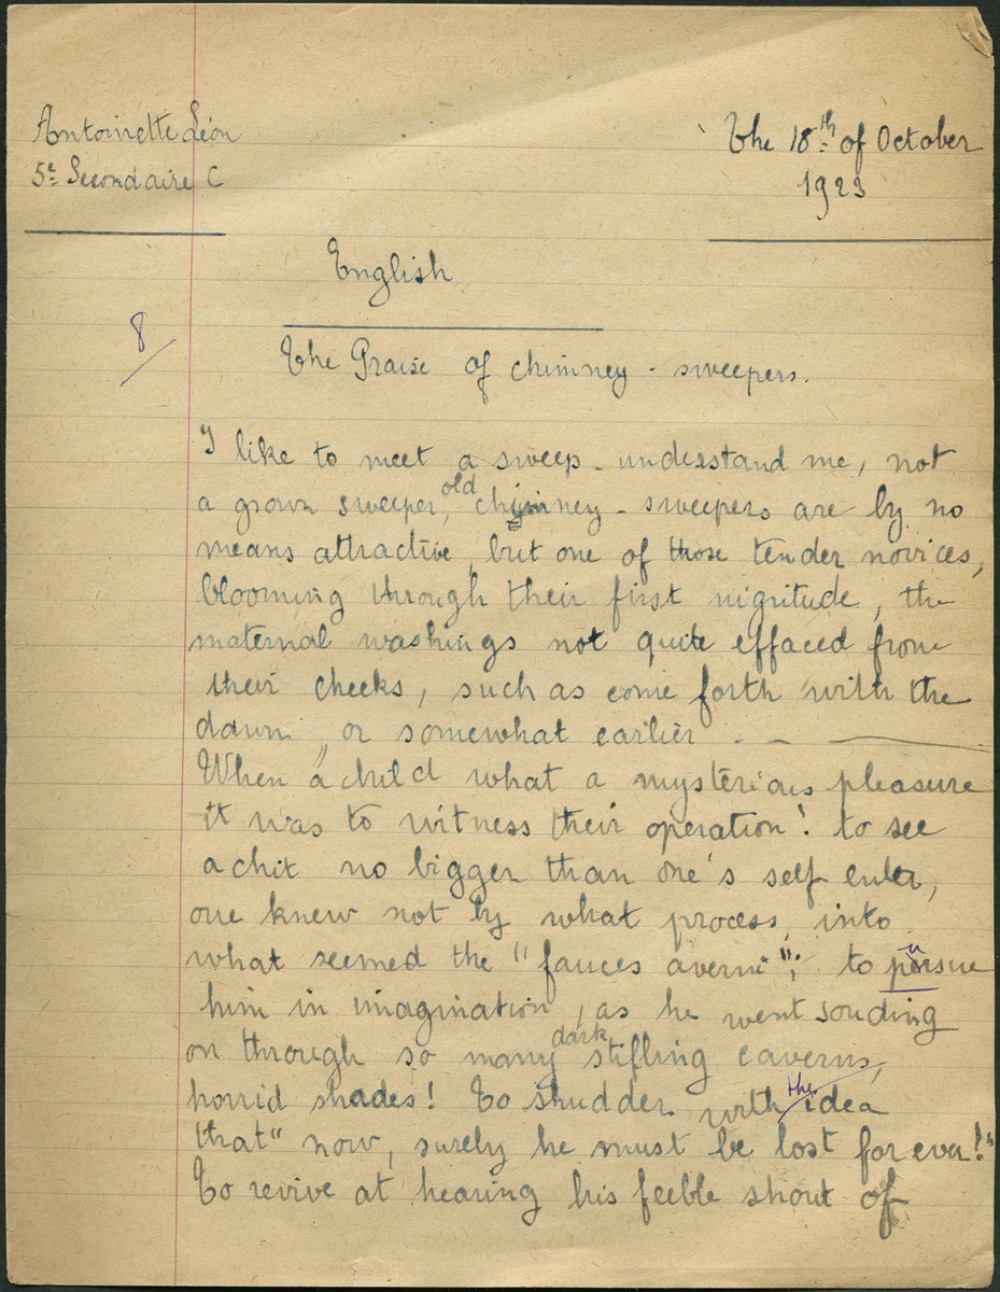 Antoinette Léon
5e Secondaire C
The 18th of October
1923
English
8
The Praise of chimney - sweepers.
I like to meet a sweep - understand me, not
a grown sweeper, old chimney - sweepers are by no
means attractive, but one of those tender novices,
blooming through their first nigritude, the
maternal washings not quite effaced from
their cheeks, such as come forth with the
dawn, or somewhat earlier - -
When a child what a mysterious pleasure
it was to witness their operation! to see
a chit no bigger than one's self enter,
one knew not by what process, into
what seemed the "fauces averni"; to pursue
him in imagination, as he went souding
on through so many dark stifling caverns,
horrid shades! To shudder with the idea
that" now, surely he must be lost for ever!"
To revive at hearing his feeble shout of